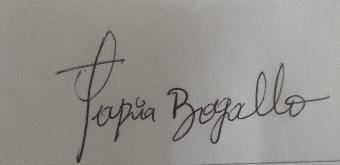 Papia Bogallo